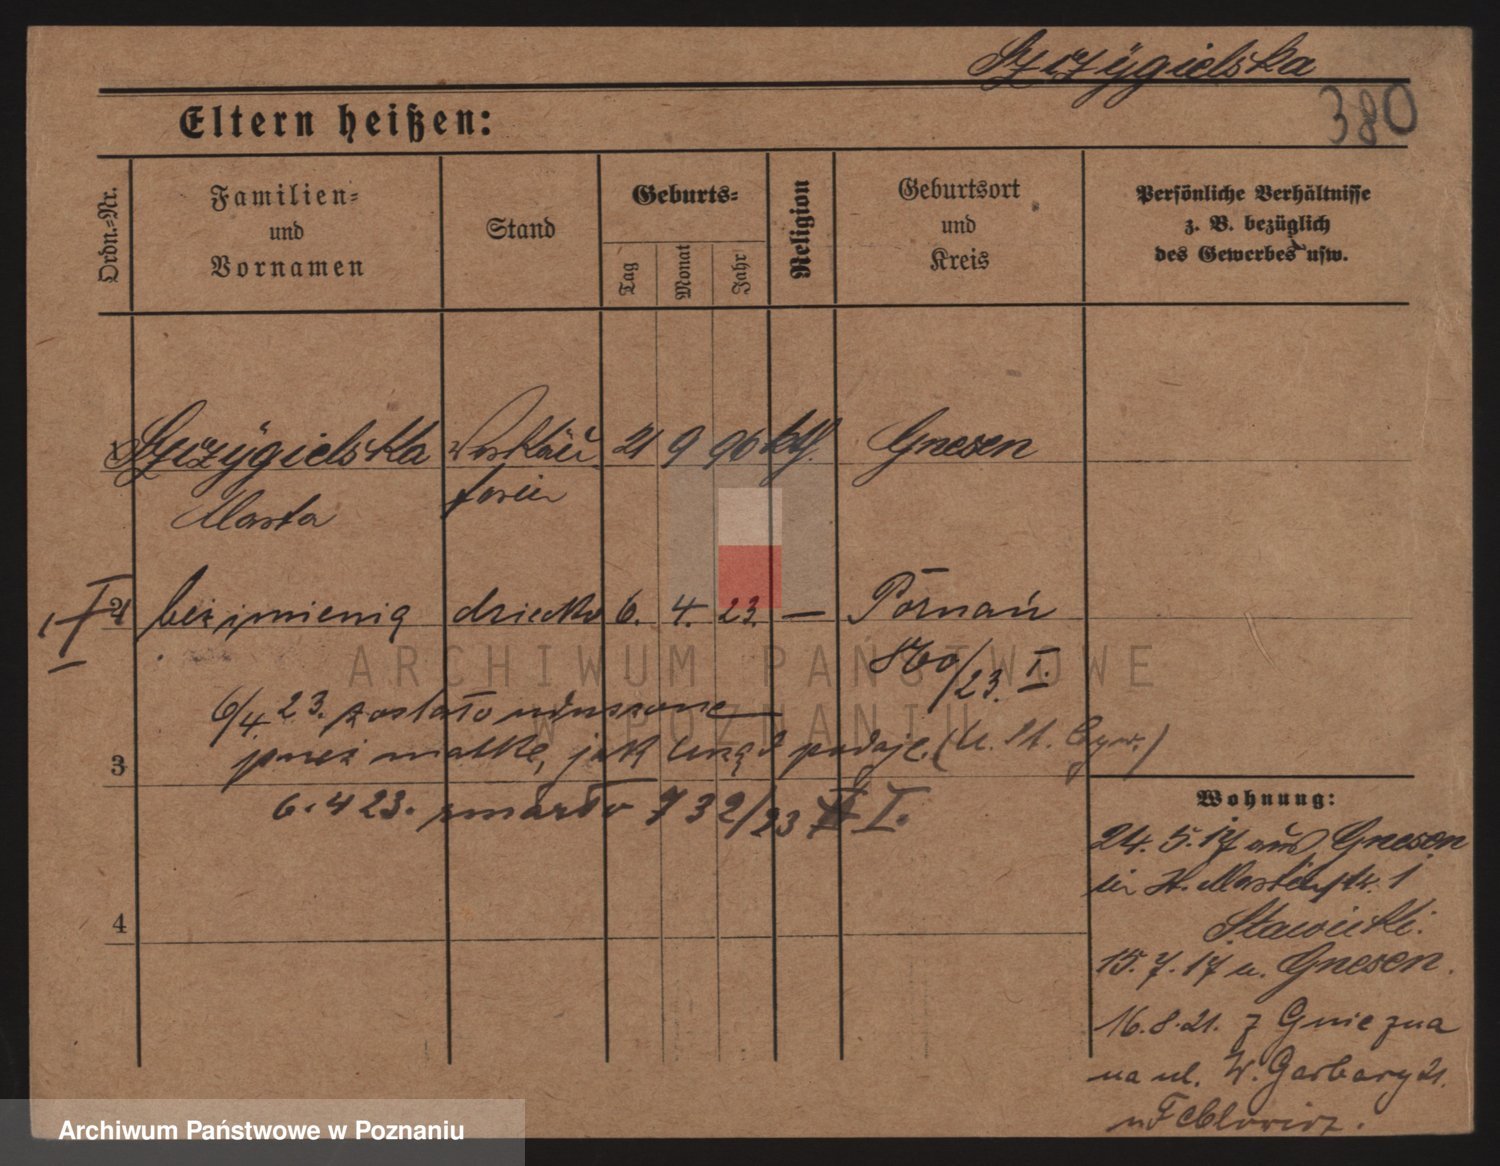 Szczygielska
380
Eltern heißen:
Ordn.-Nr.
Familien-
und
Vornamen
Stand
Geburts-
Tag
Monat
Jahr
Religion
Geburtsort
und
Kreis
Persönliche Verhältnisse
z. B. bezüglich
des Gewerbes usw.
1 Szczygielska 21 9 96 kth. Gnesen
Marta
2 bez imienia dziecko 6. 4. 23. — Poznań
860/23. I.
6/4. 23. zostało
3 przez matkę, jak urząd podaje. (U. St. Cyw.)
6. 4 23. zmarło 732/23 I.
4
Wohnung:
24. 5. 17 aus Gnesen
St. Martinstr. 1
Stawicki.
15. 7. 17 n. Gnesen.
16. 8. 21. z Gniezna
na ul. W. Garbary 21.
ARCHIWUM PAŃSTWOWE
W POZNANIU
Archiwum Państwowe w Poznaniu